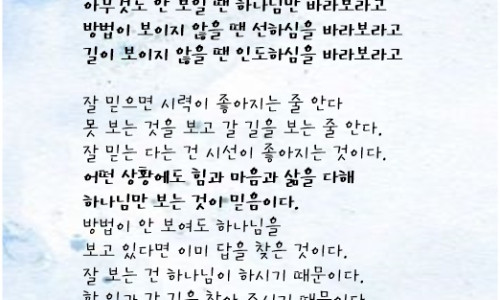 아무것도 안 보일 땐 하나님만 바라보라고
방법이 보이지 않을 땐 선하심을 바라보라고
길이 보이지 않을 땐 인도하심을 바라보라고
잘 믿으면 시력이 좋아지는 줄 안다
못 보는 것을 보고 갈 길을 보는 줄 안다.
잘 믿는 다는 건 시선이 좋아지는 것이다.
어떤 상황에도 힘과 마음과 삶을 다해
하나님만 보는 것이 믿음이다.
방법이 안 보여도 하나님을
보고 있다면 이미 답을 찾은 것이다.
잘 보는 건 하나님이 하시기 때문이다.
할 일과 갈 길을 찾아 주시기 때문이다